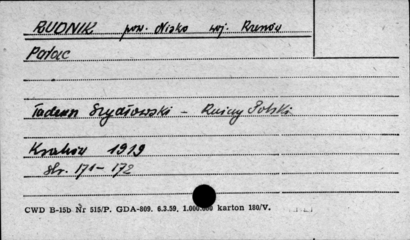 RUDNIK pow. Nisko woj. Rzeszów
Pałac
Tadeusz Szydłowski - Ruiny Polski
Kraków 1919
str. 171-172
CWD B-15b Nr 515/P. GDA-809. 6.3.59, 1.000.000 karton 180/V.